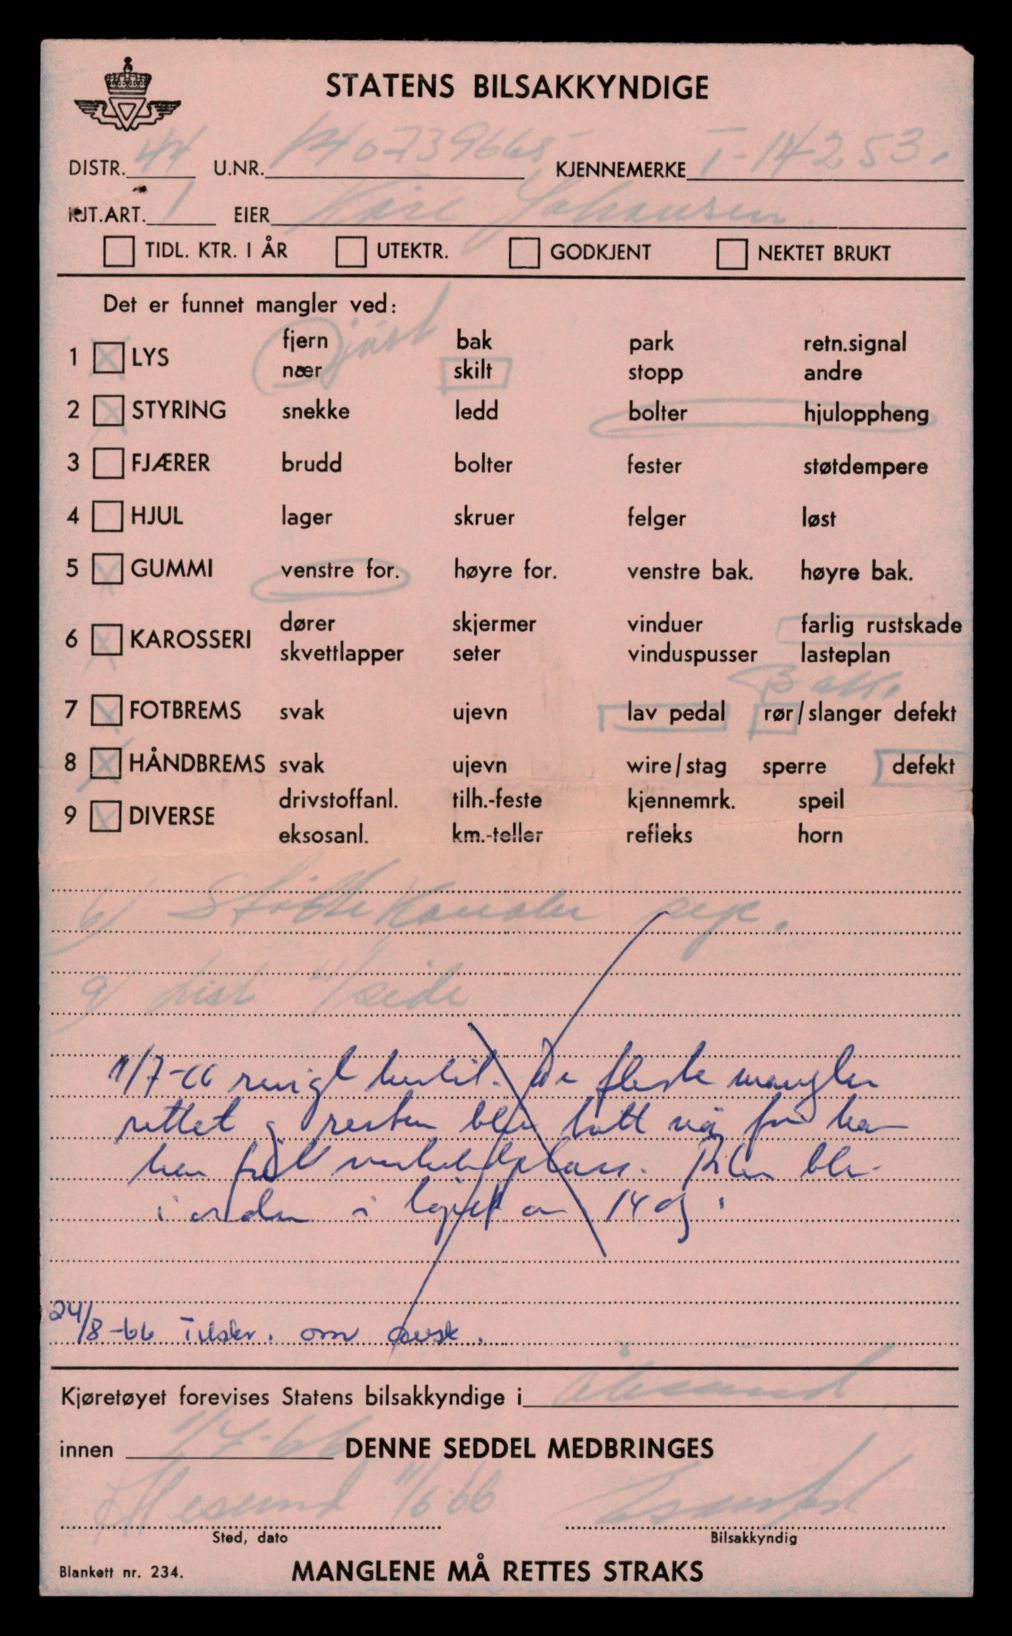 STATENS BILSAKKYNDIGE
DISTR. 44 U.NR. KJENNEMERKE T-14253.
KJT.ART. 1 EIER Kåre Johansen
TIDL. KTR. I ÅR UTEKTR. GODKJENT NEKTET BRUKT
Det er funnet mangler ved:
fjern bak park retn.signal
1 LYS
nær skilt stopp andre
2 STYRING snekke ledd bolter hjuloppheng
3 FJÆRER brudd bolter fester støtdempere
4 HJUL lager skruer felger løst
5 GUMMI venstre for. høyre for. venstre bak. høyre bak.
dører skjermer vinduer farlig rustskade
6 KAROSSERI
skvettlapper seter vinduspusser lasteplan
Bak.
7 FOTBREMS svak ujevn lav pedal rør/slanger defekt
8 HÅNDBREMS svak ujevn wire/stag sperre defekt
drivstoffanl. tilh.-feste kjennemrk. speil
9 DIVERSE
eksosanl. km.-teller refleks horn
6) Støtte Kanaler
9) List side
11/7-66 ringt hertil. De fleste mangler
rettet og resten ble tatt når
han fikk verkstedplass. Bilen ble
i orden i løpet av 14 dg.
24/8-66 Tilskr. om
Kjøretøyet forevises Statens bilsakkyndige i Ålesund
innen 1/7-66 DENNE SEDDEL MEDBRINGES
Ålesund 11/6 66
Sted, dato Bilsakkyndig
Blankett nr. 234. MANGLENE MÅ RETTES STRAKS